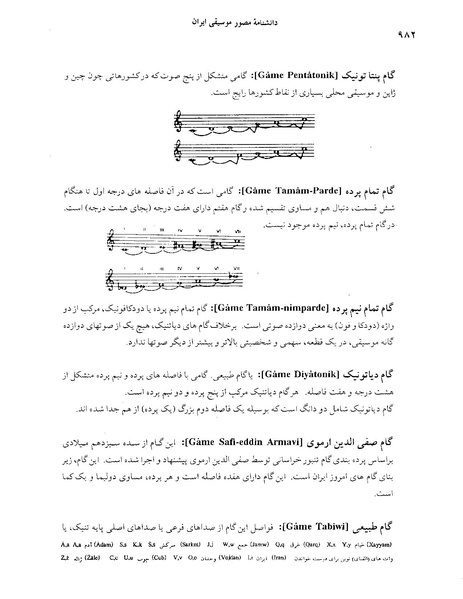 دانشنامهٔ مصور موسیقی ایران
۹۸۲
گام پنتا تونیک [Gâme Pentâtonik]: گامی متشکل از پنج صوت که در کشورهائی چون چین و
ژاپن و موسیقی محلی بسیاری از نقاط کشورها رایج است.
گام تمام پرده [Gâme Tamâm-Parde]: گامی است که در آن فاصله های درجه اول تا هنگام
شش قسمت، دنبال هم و مساوی تقسیم شده و گام هفتم دارای هفت درجه (بجای هشت درجه) است.
در گام تمام پرده، نیم پرده موجود نیست.
I II III IV V VI VII
I II III IV V VI VII
گام تمام نیم پرده [Gâme Tamâm-nimparde]: گام تمام نیم پرده یا دودکافونیک، مرکب از دو
واژه (دودکا و فون) به معنی دوازده صوتی است. برخلاف گام های دیاتنیک، هیچ یک از صوتهای دوازده
گانه موسیقی، در یک قطعه، سهمی و شخصیتی بالاتر و بیشتر از دیگر صوتها ندارد.
گام دیاتونیک [Gâme Diyâtonik]: یا گام طبیعی. گامی با فاصله های پرده و نیم پرده متشکل از
هشت درجه و هفت فاصله. هر گام دیاتنیک مرکب از پنج پرده و دو نیم پرده است.
گام دیاتونیک شامل دو دانگ است که بوسیله یک فاصله دوم بزرگ (یک پرده) از هم جدا شده اند.
گام صفی الدین ارموی [Gâme Safi-eddin Armavi]: این گام از سده سیزدهم میلادی
براساس پرده بندی گام تنبور خراسانی توسط صفی الدین ارموی پیشنهاد و اجرا شده است. این گام، زیر
بنای گام های امروز ایران است. این گام دارای هفده فاصله است و هر پرده، مساوی دولیما و یک کما
است.
گام طبیعی [Gâme Tabiwi]: فواصل این گام از صداهای فرعی یا صداهای اصلی پایه تنیک، یا
A,a A,a آدم (Adam) S,s K,k Š,š سرکش (Sarkeš) J,j جمع (Jamw) W,w غرق (Qarq) Q,q خیام (Xayyam) X,x Y,y
Z,z ژاله (Žale) C,c U,u چوب (Cub) V,v O,o وجدان (Vojdan) I,i ایران (Iran) وات های (الفبای) نوین برای درست خواندن